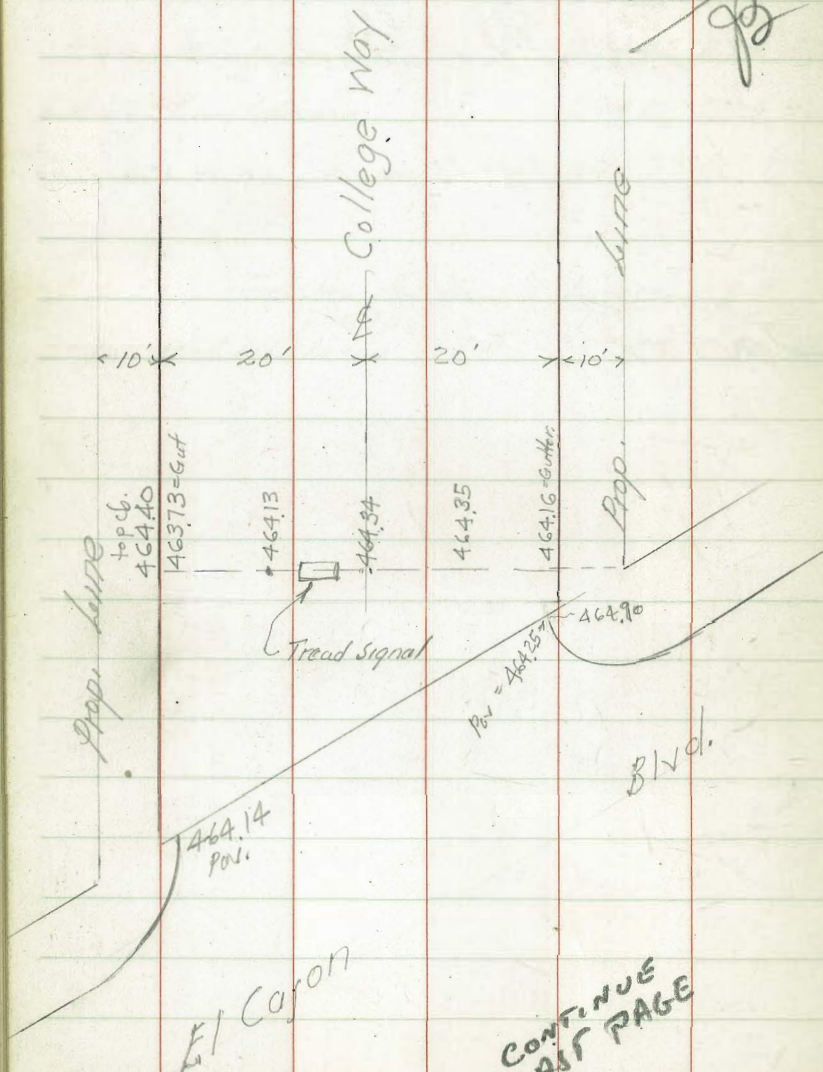 College Way
Prop. Line
10'
20'
20'
10'
top cb.
464.40
463.73=Gut
464.13
464.34
464.35
464.16=Gutter
Prop. Line
Tread Signal
464.90
Pav = 464.25
464.14
Pav.
El Cajon
Blvd.
CONTINUE
PAGE